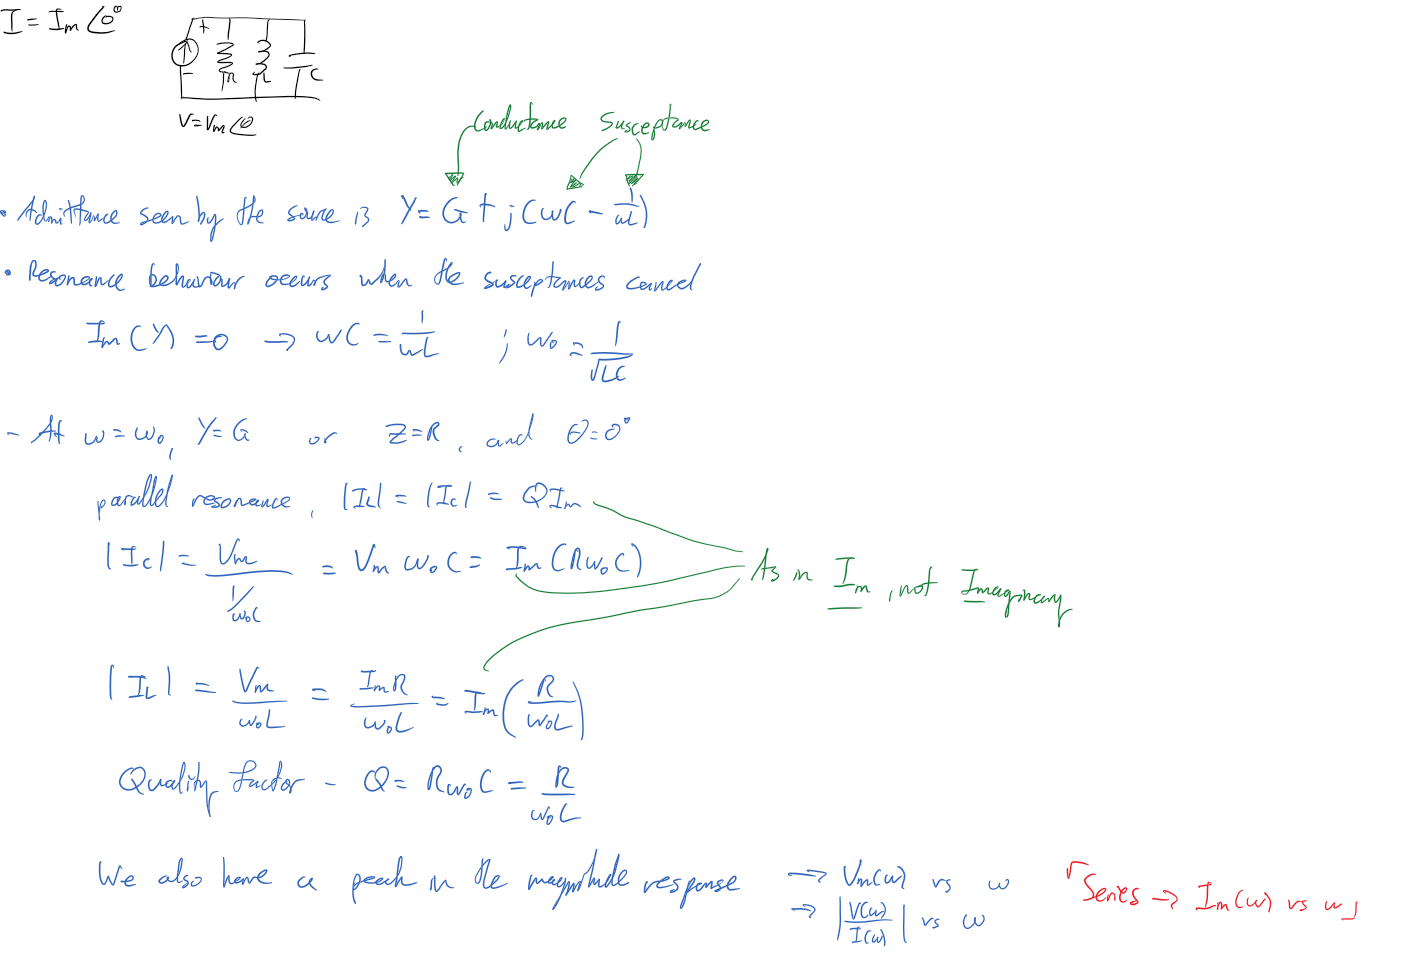 I = Im∠0°
+
-
R
L
C
V=Vm∠θ
Conductance Susceptance
• Admittance seen by the source is Y = G + j(ωC - 1/ωL)
• Resonance behaviour occurs when the susceptances cancel
Im(Y) = 0 → ωC = 1/ωL ; ω₀ = 1/√LC
- At ω = ω₀, Y = G or Z = R, and θ = 0°
parallel resonance, |IL| = |Ic| = QIm
|Ic| = Vm/(1/ω₀C) = Vm ω₀C = Im(Rω₀C)
As in Im, not Imaginary
|IL| = Vm/ω₀L = ImR/ω₀L = Im(R/ω₀L)
Quality factor - Q = Rω₀C = R/ω₀L
We also have a peak in the magnitude response → Vm(ω) vs ω
→ |V(ω)/I(ω)| vs ω
「Series → Im(ω) vs ω」